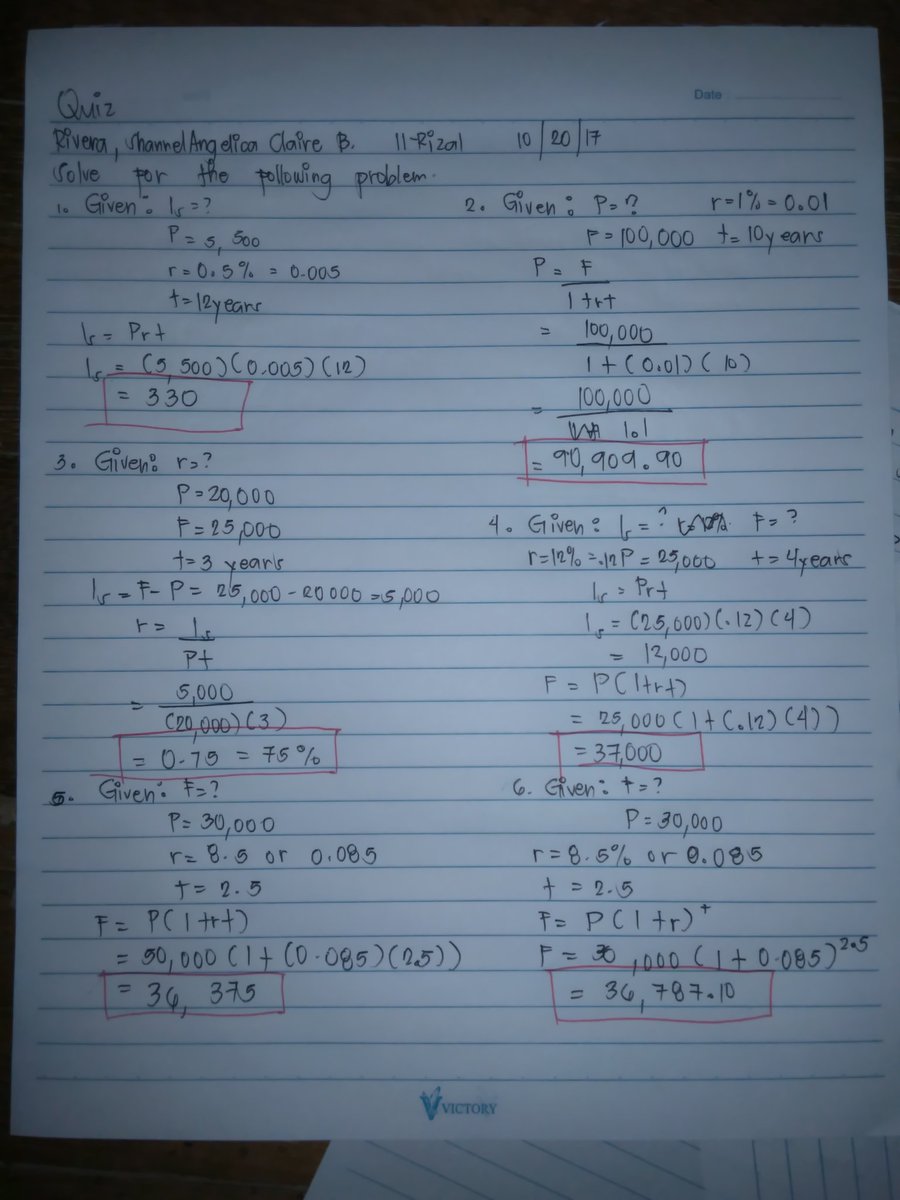 Date
Quiz
Rivera, Shannel Angelica Claire B. 11-Rizal 10/20/17
Solve for the following problem.
1. Given: Is = ?
P = 5, 500
r = 0.5% = 0.005
t = 12 years
Is = Prt
Is = (5, 500)(0.005)(12)
= 330
2. Given: P = ? r = 1% = 0.01
F = 100,000 t = 10 years
P = F
1 + rt
= 100,000
1 + (0.01)(10)
= 100,000
1.1
= 90,909.90
3. Given: r = ?
P = 20,000
F = 25,000
t = 3 years
Is = F - P = 25,000 - 20 000 = 5,000
r = Is
Pt
= 5,000
(20,000)(3)
= 0.75 = 75%
4. Given: Is = ? F = ?
r = 12% = .12 P = 25,000 t = 4 years
Is = Prt
Is = (25,000)(.12)(4)
= 12,000
F = P(1+rt)
= 25,000 (1+(.12)(4))
= 37,000
5. Given: F = ?
P = 30,000
r = 8.5 or 0.085
t = 2.5
F = P(1+rt)
= 30,000 (1+(0.085)(2.5))
= 36, 375
6. Given: t = ?
P = 30,000
r = 8.5% or 0.085
t = 2.5
F = P(1+r)^t
F = 30,000 (1+0.085)^2.5
= 36,787.10
VICTORY